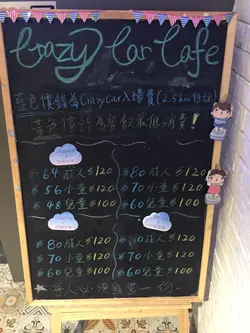 Crazy Car Cafe
藍色價錢為Crazy Car入場費(2.5hr
黃色價錢為餐飲最低消費!
$64成人$120 $80成人$120
$56小童$120 $70小童$120
$48兒童$100 $60兒童$100
$80成人$120 成人$120
$70小童$120 小童$120
$60兒童$100 $60兒童$100
每人必須